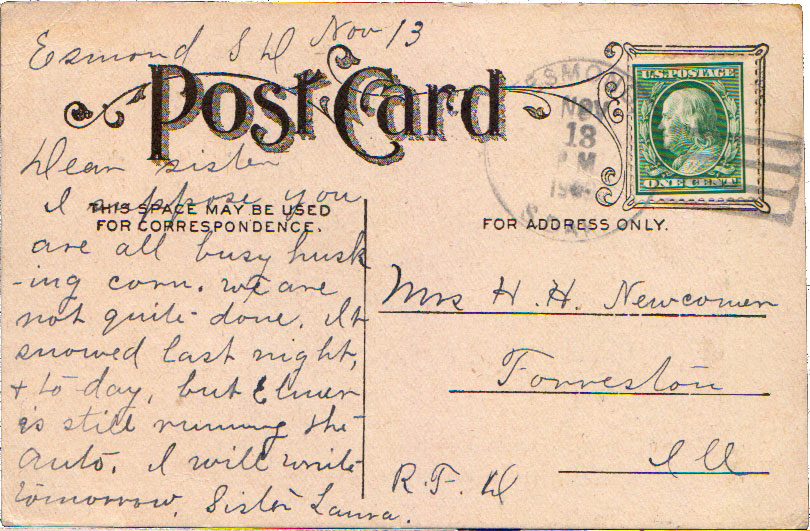 Esmond S D Nov 13
Post Card
Dear sister
I suppose you
THIS SPACE MAY BE USED
FOR CORRESPONDENCE.
are all busy husk
-ing corn. we are
not quite done. It
snowed last night,
+ to-day, but Elmer
is still running the
auto. I will write
tomorrow. Sister Laura.
NOV
18
M
U.S. POSTAGE
ONE CENT
FOR ADDRESS ONLY.
Mrs H. H. Newcomer
Forreston
Ill
R. F. D